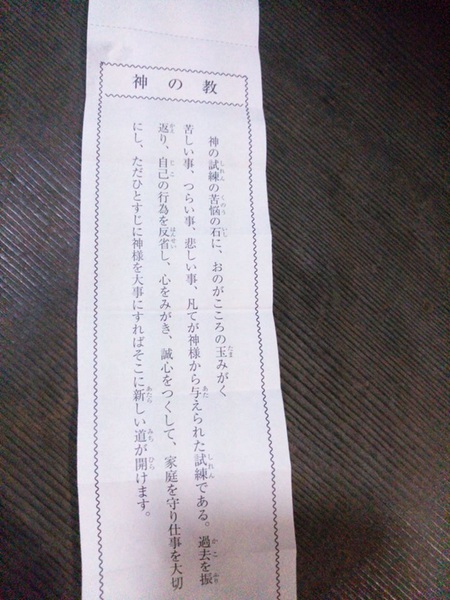 神の教
神の試練の苦悩の石に、おのがこころの玉みがく
苦しい事、つらい事、悲しい事、凡てが神様から与えられた試練である。過去を振
返り、自己の行為を反省し、心をみがき、誠心をつくして、家庭を守り仕事を大切
にし、ただひとすじに神様を大事にすればそこに新しい道が開けます。